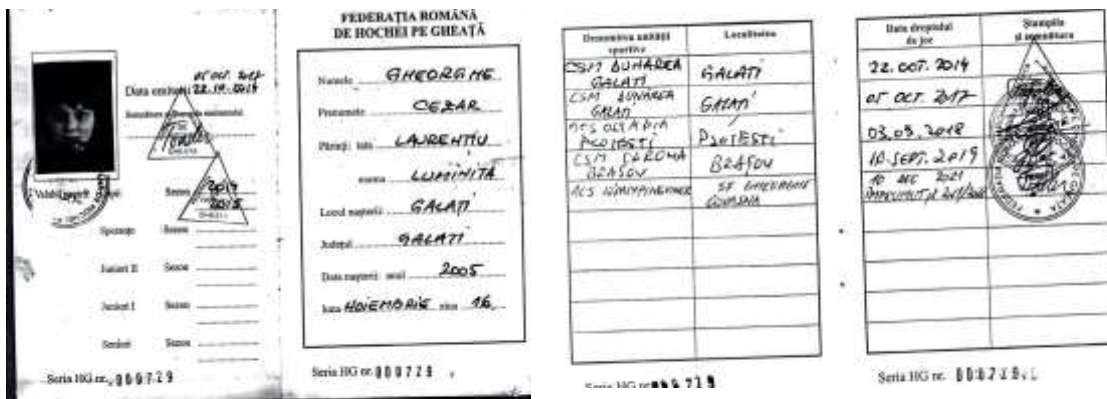 05 OCT. 2017
Data emiterii 22.10.2014
Sezon 2014
2015
Speranțe Sezon
Juniori II Sezon
Juniori I Sezon
Seniori Sezon
Seria HG nr. 000729
FEDERAȚIA ROMÂNĂ
DE HOCHEI PE GHEAȚĂ
Numele GHEORGHE
Prenumele CEZAR
Părinți: tata LAURENȚIU
mama LUMINIȚA
Locul nașterii GALAȚI
Județul GALAȚI
Data nașterii: anul 2005
luna NOIEMBRIE ziua 16.
Seria HG nr. 000729
Denumirea unității sportive Localitatea
CSM DUNĂREA GALAȚI GALAȚI
CSM DUNĂREA GALAȚI GALAȚI
ACS OLYMPIA PLOIEȘTI PLOIEȘTI
CSM CORONA BRAȘOV BRAȘOV
ACS SF GHEORGHE COVASNA
Seria HG nr 000729
Data dreptului de joc Ștampila și semnătura
22. OCT. 2014
05 OCT. 2017
03.09.2018
10. SEPT. 2019
10 DEC 2021
ÎMPRUMUT
Seria HG nr. 000729